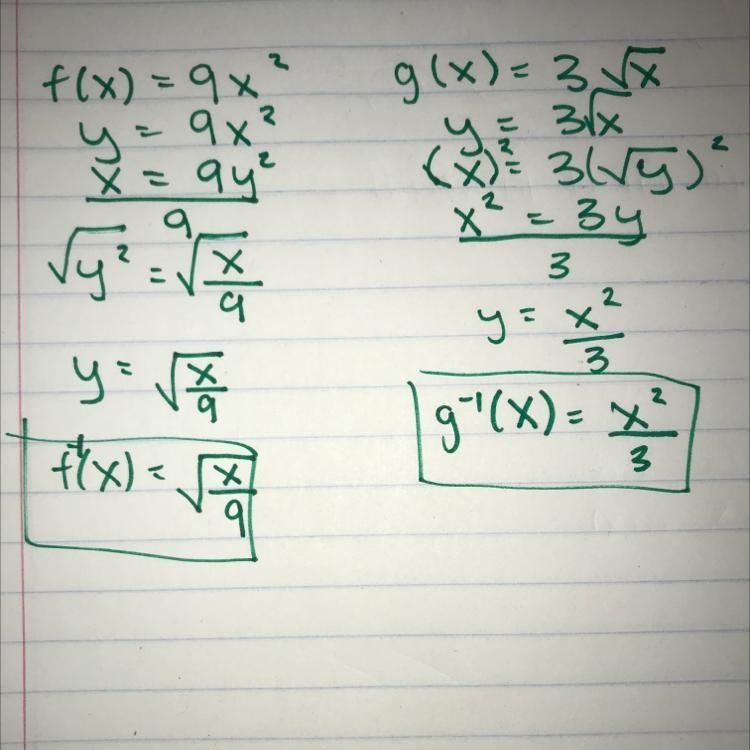 f(x) = 9x²
y = 9x²
x = 9y²
9
√y² = √x/9
y = √x/9
f⁻¹(x) = √x/9
g(x) = 3√x
y = 3√x
(x)² = 3(√y)²
x² = 3y
3
y = x²/3
g⁻¹(x) = x²/3